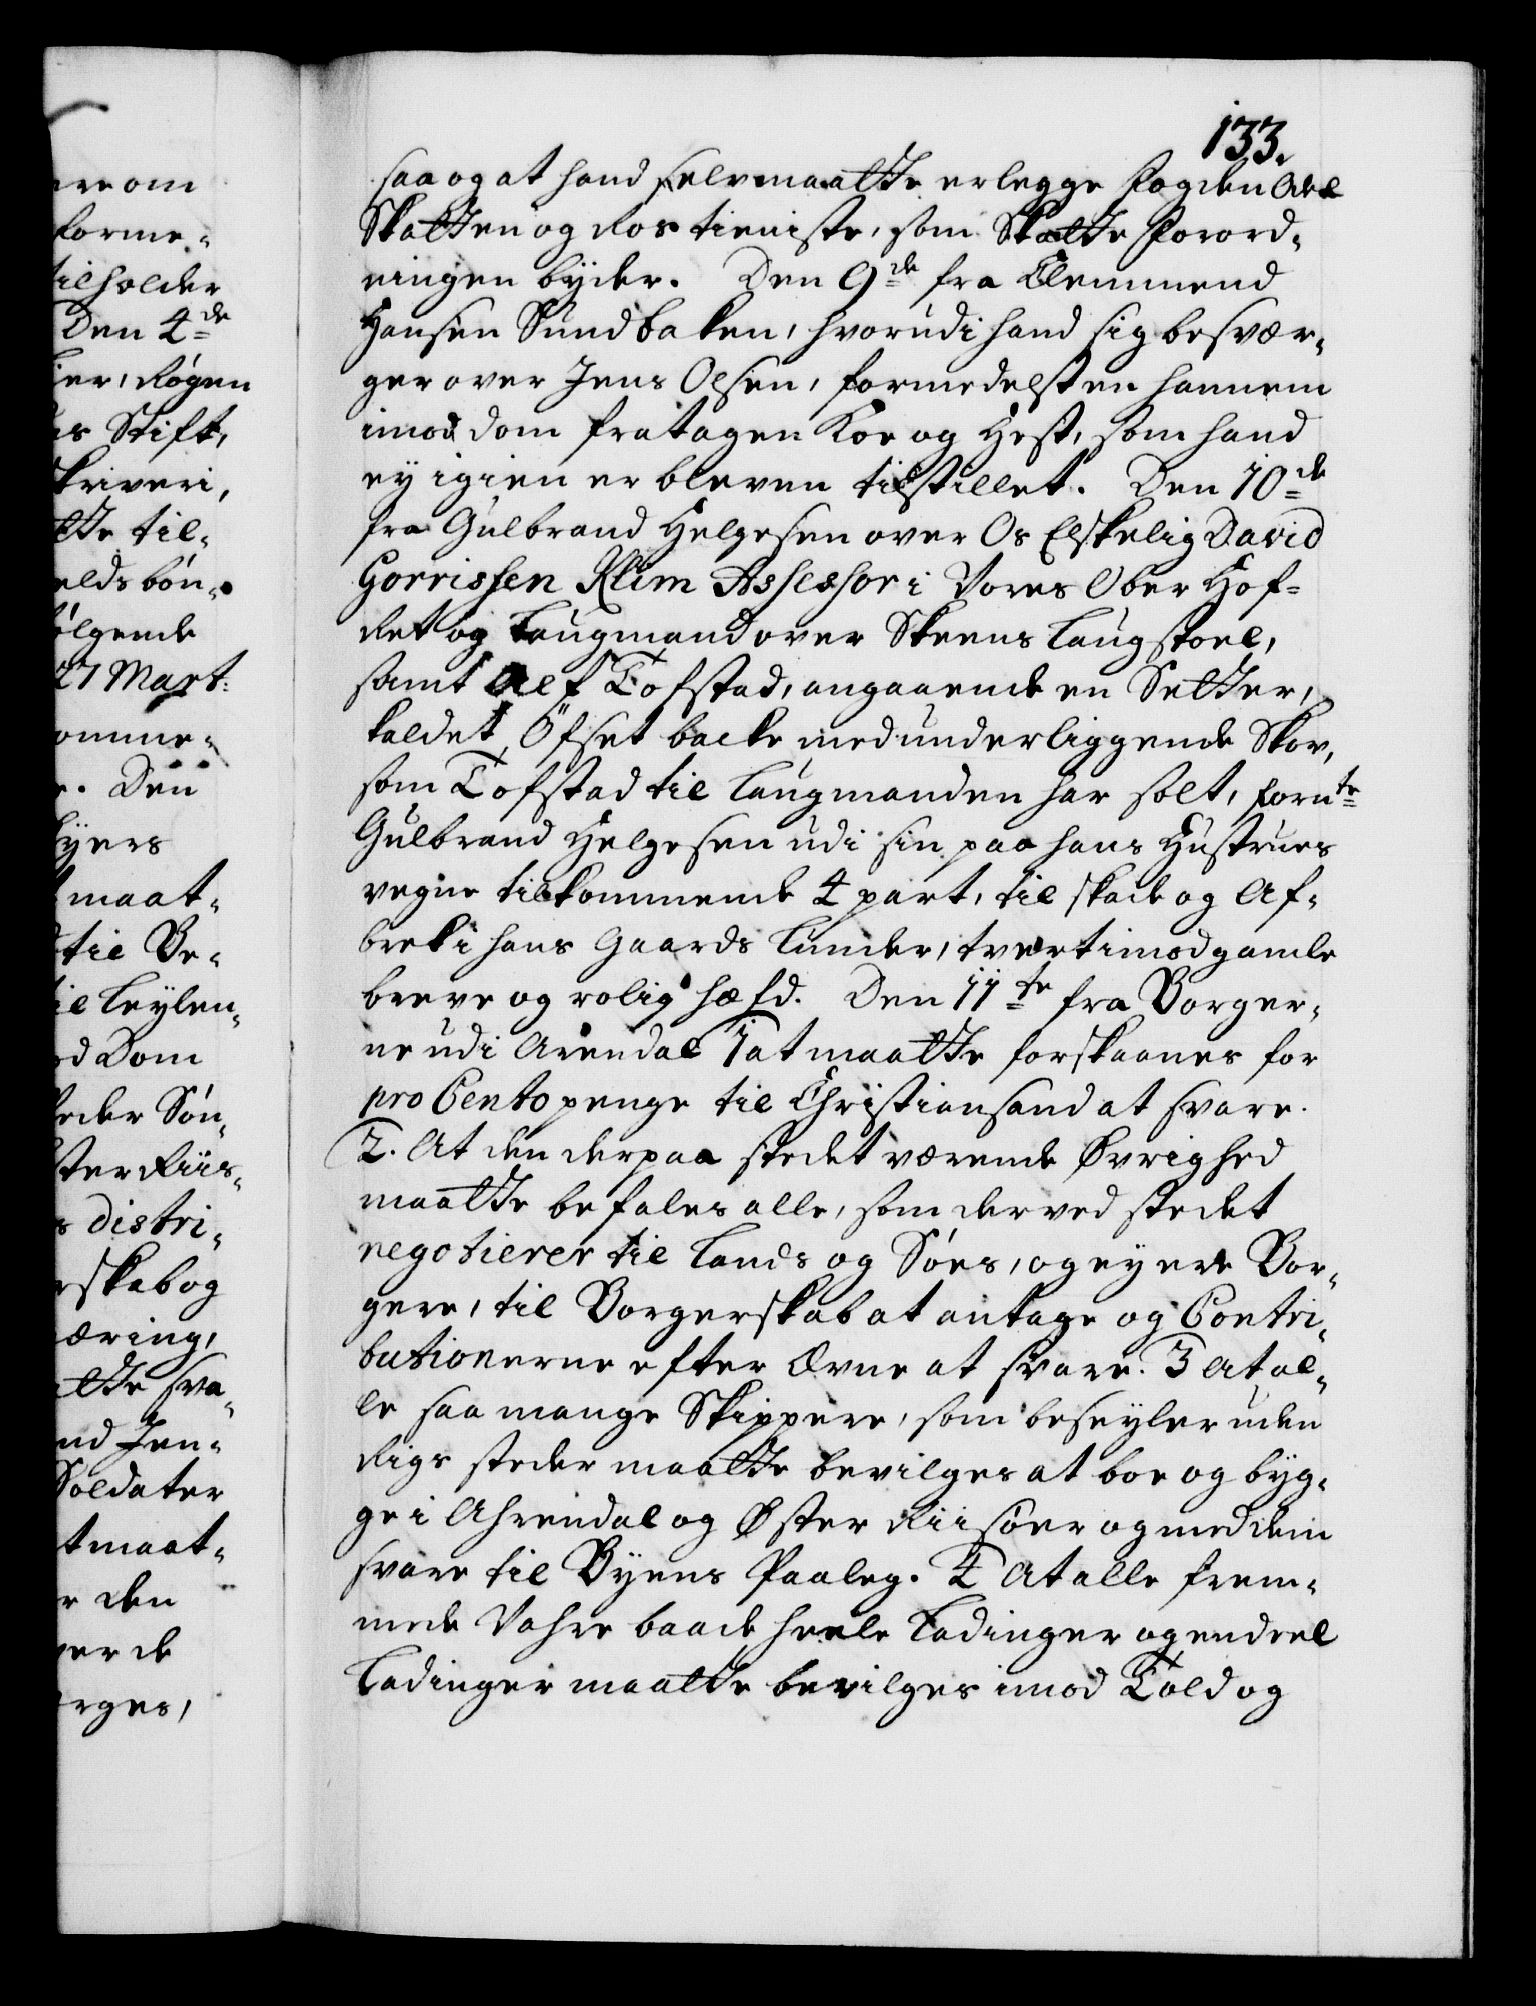 133.
saa og at hand selv maatte erlegge Fogden Odel
Skatten og Ros tieniste, som Skatte Forord-
ningen byder. Den 9de fra Clemmend
Hansen Sundbaken, hvorudi hand sig besvær-
ger over Jens Olsen, formedelst en hannem
imod dom fratagen Koe og Hest, som hand
ey igien er bleven tilstillet. Den 10de
fra Gulbrand Helgesen over Os Elskelig David
Gorrissen Klim Assessor i Vores Ober Hof-
det og Laugmand over Skeens Laugstoel,
samt Alf Tofstad, angaaende en Setter,
kaldet Öfset backe med underliggende Skov,
som Tofstad til Laugmanden har solt, fornte
Gulbrand Helgesen udi sin paa hans Hustrues
vegne tilkommende 4 part, til skade og Af-
brek i hans Gaards Lunder, tvertimod gamle
breve og rolig hæfd. Den 11te fra Borger-
ne udi Arendal 1 at maatte forskaanes for
pro Cento penge til Christiansand at svare.
2. At den der paa stedet værende Øvrighed
maatte befales alle, som der ved stedet
negotierer til Lands og Søes, og ey ere Bor-
gere, til Borgerskab at antage og Contri-
butionerne efter Ævne at svare. 3 At al-
le saa mange Skippere, som beseyler uden
Rigs steder maatte bevilges at boe og byg-
ge i Ahrendal og Øster Riisöer og med dem
svare til Byens Paaleg. 4 At alle frem-
mede Vahre baade heele Ladinger og endeel
Ladinger maatte bevilges imod Told og
are om
forme-
tilholder
Den 4de
ier, Røgen
ns Stift,
skriveri,
atte til-
elds bøn-
følgende
27 Mart:
omme-
e. Den
yers
maat-
til Be-
til Leylen-
ed Dom
heder Søn-
ster Riis-
s distri-
rskab og
næring,
atte sva-
nd Jen-
Soldater
t maat-
r den
ver de
orges,